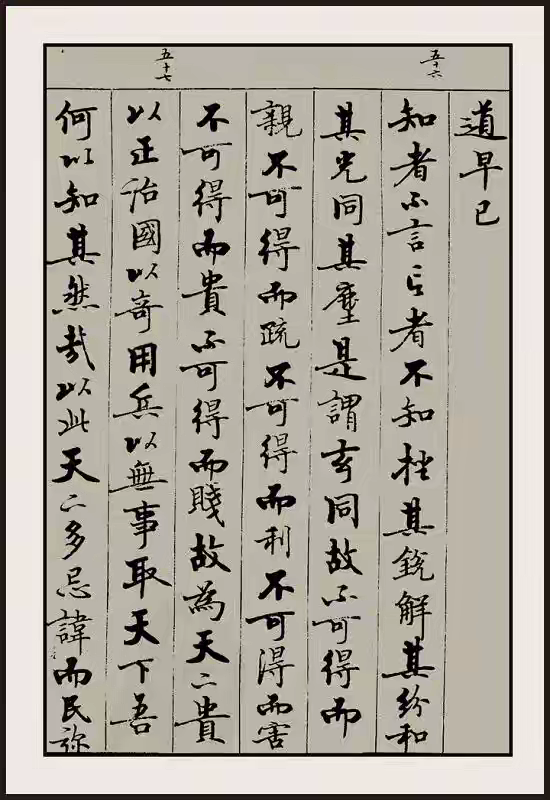 道早已
五十六
知者不言言者不知挫其銳解其紛和
其光同其塵是謂玄同故不可得而
親不可得而疏不可得而利不可得而害
不可得而貴不可得而賤故為天下貴
五十七
以正治國以奇用兵以無事取天下吾
何以知其然哉以此天下多忌諱而民弥